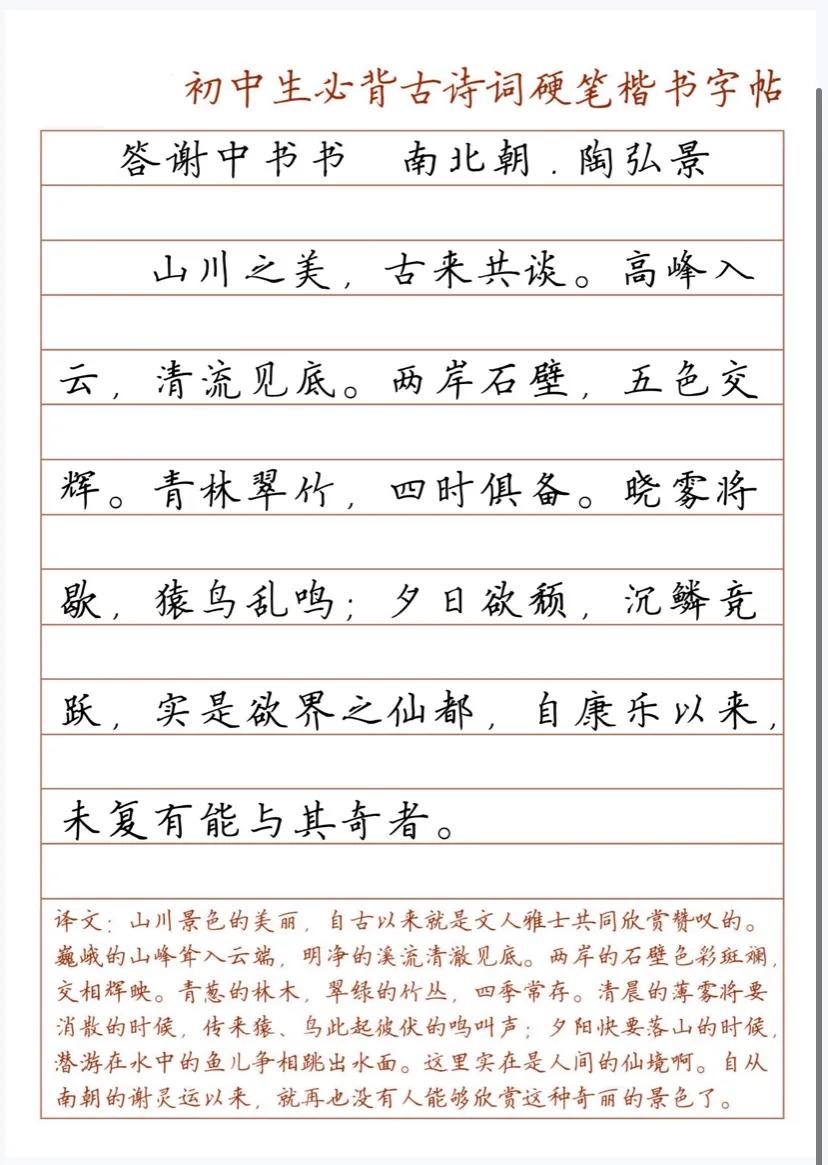 初中生必背古诗词硬笔楷书字帖
答谢中书书 南北朝．陶弘景
山川之美，古来共谈。高峰入
云，清流见底。两岸石壁，五色交
辉。青林翠竹，四时俱备。晓雾将
歇，猿鸟乱鸣；夕日欲颓，沉鳞竞
跃，实是欲界之仙都，自康乐以来，
未复有能与其奇者。
译文：山川景色的美丽，自古以来就是文人雅士共同欣赏赞叹的。
巍峨的山峰耸入云端，明净的溪流清澈见底。两岸的石壁色彩斑斓，
交相辉映。青葱的林木，翠绿的竹丛，四季常存。清晨的薄雾将要
消散的时候，传来猿、鸟此起彼伏的鸣叫声；夕阳快要落山的时候，
潜游在水中的鱼儿争相跳出水面。这里实在是人间的仙境啊。自从
南朝的谢灵运以来，就再也没有人能够欣赏这种奇丽的景色了。